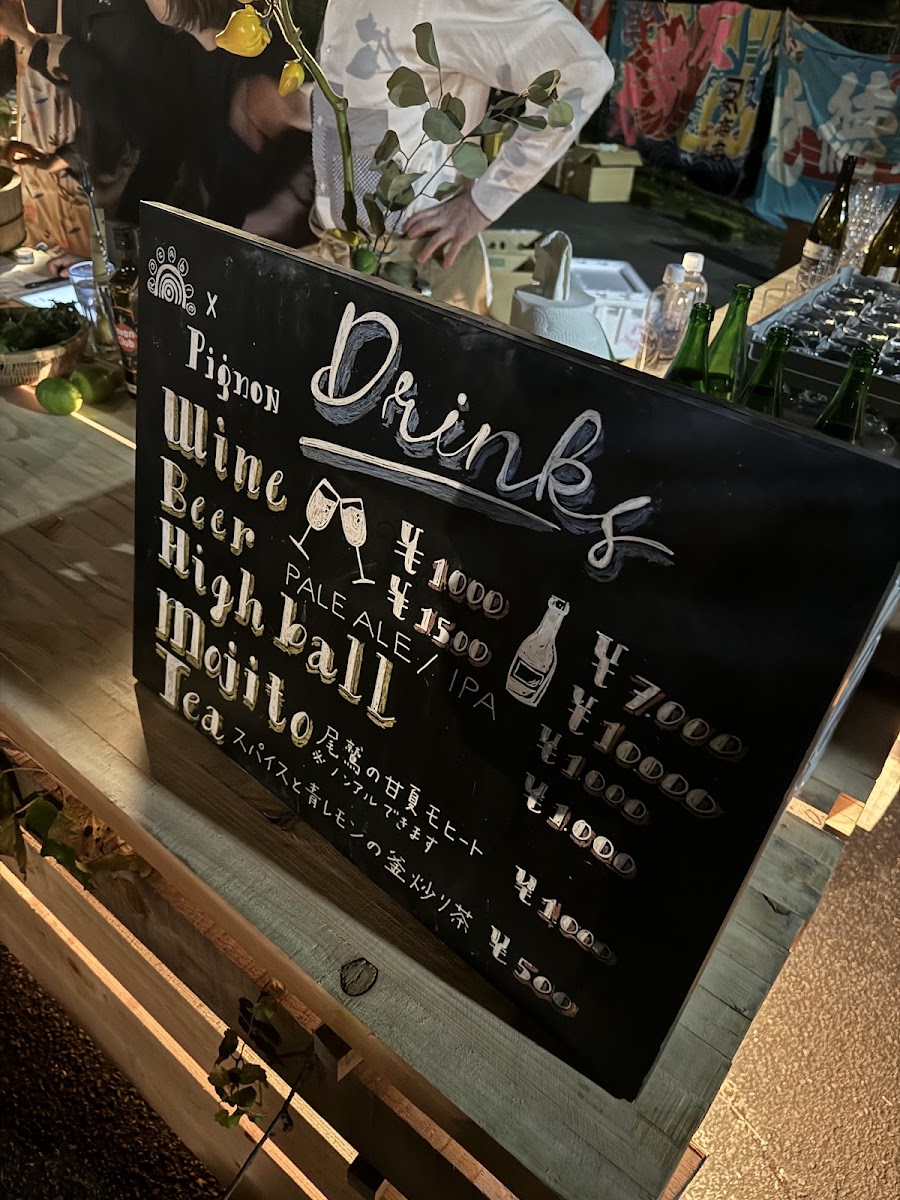 OCEAN
x
Pignon
Drinks
Wine ¥1000 ¥7.000
¥1500 ¥10000
Beer PALE ALE / IPA ¥1000
High ball ¥1.000
Mojito 尾鷲の甘夏モヒート ¥1000
※ノンアルできます
Tea スパイスと青レモンの釜炒り茶 ¥500